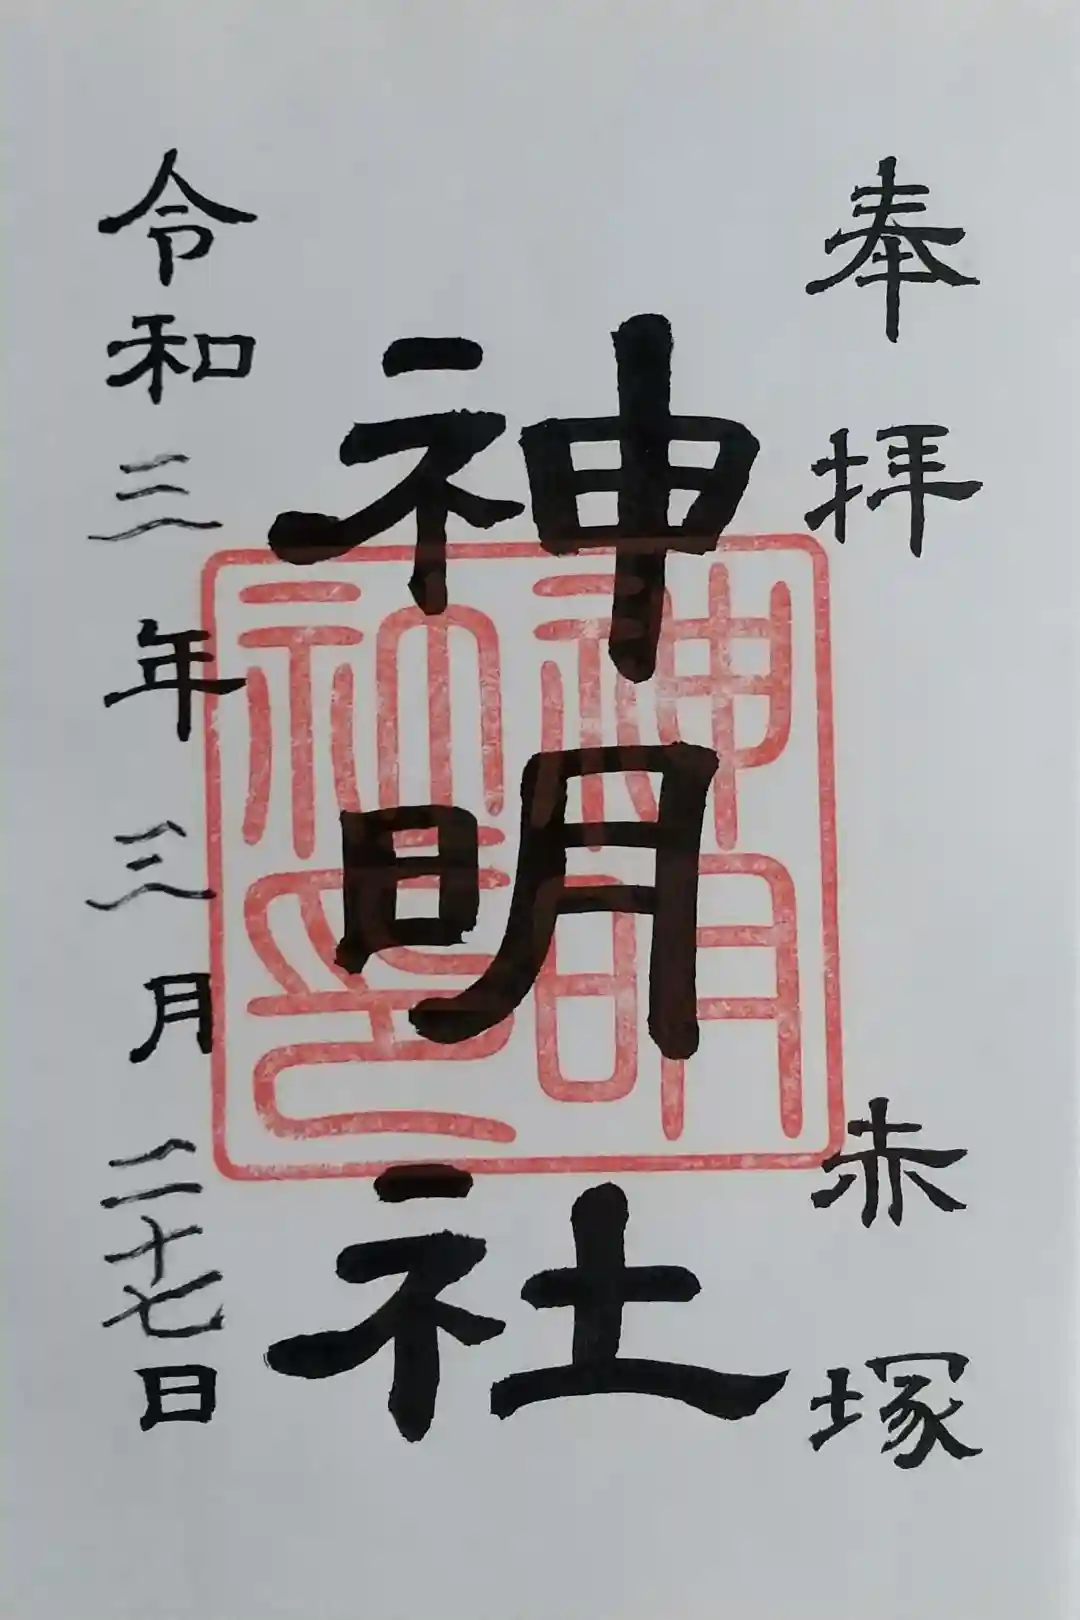 奉拝
赤塚
神明社
神明社印
令和三年三月二十七日